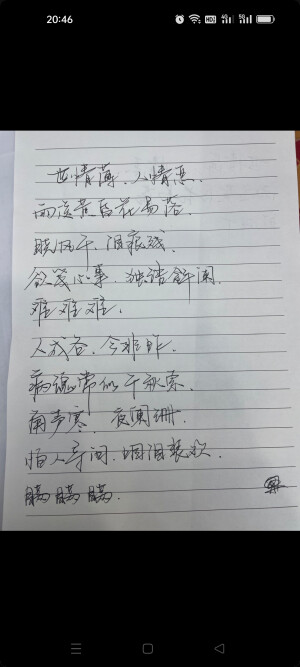 20:46
世情薄，人情恶，
雨送黄昏花易落。
晓风干，泪痕残，
欲笺心事，独语斜阑。
难难难，
人成各，今非昨，
病魂常似千秋索。
角声寒 夜阑珊，
怕人寻问，咽泪装欢，
瞒瞒瞒。